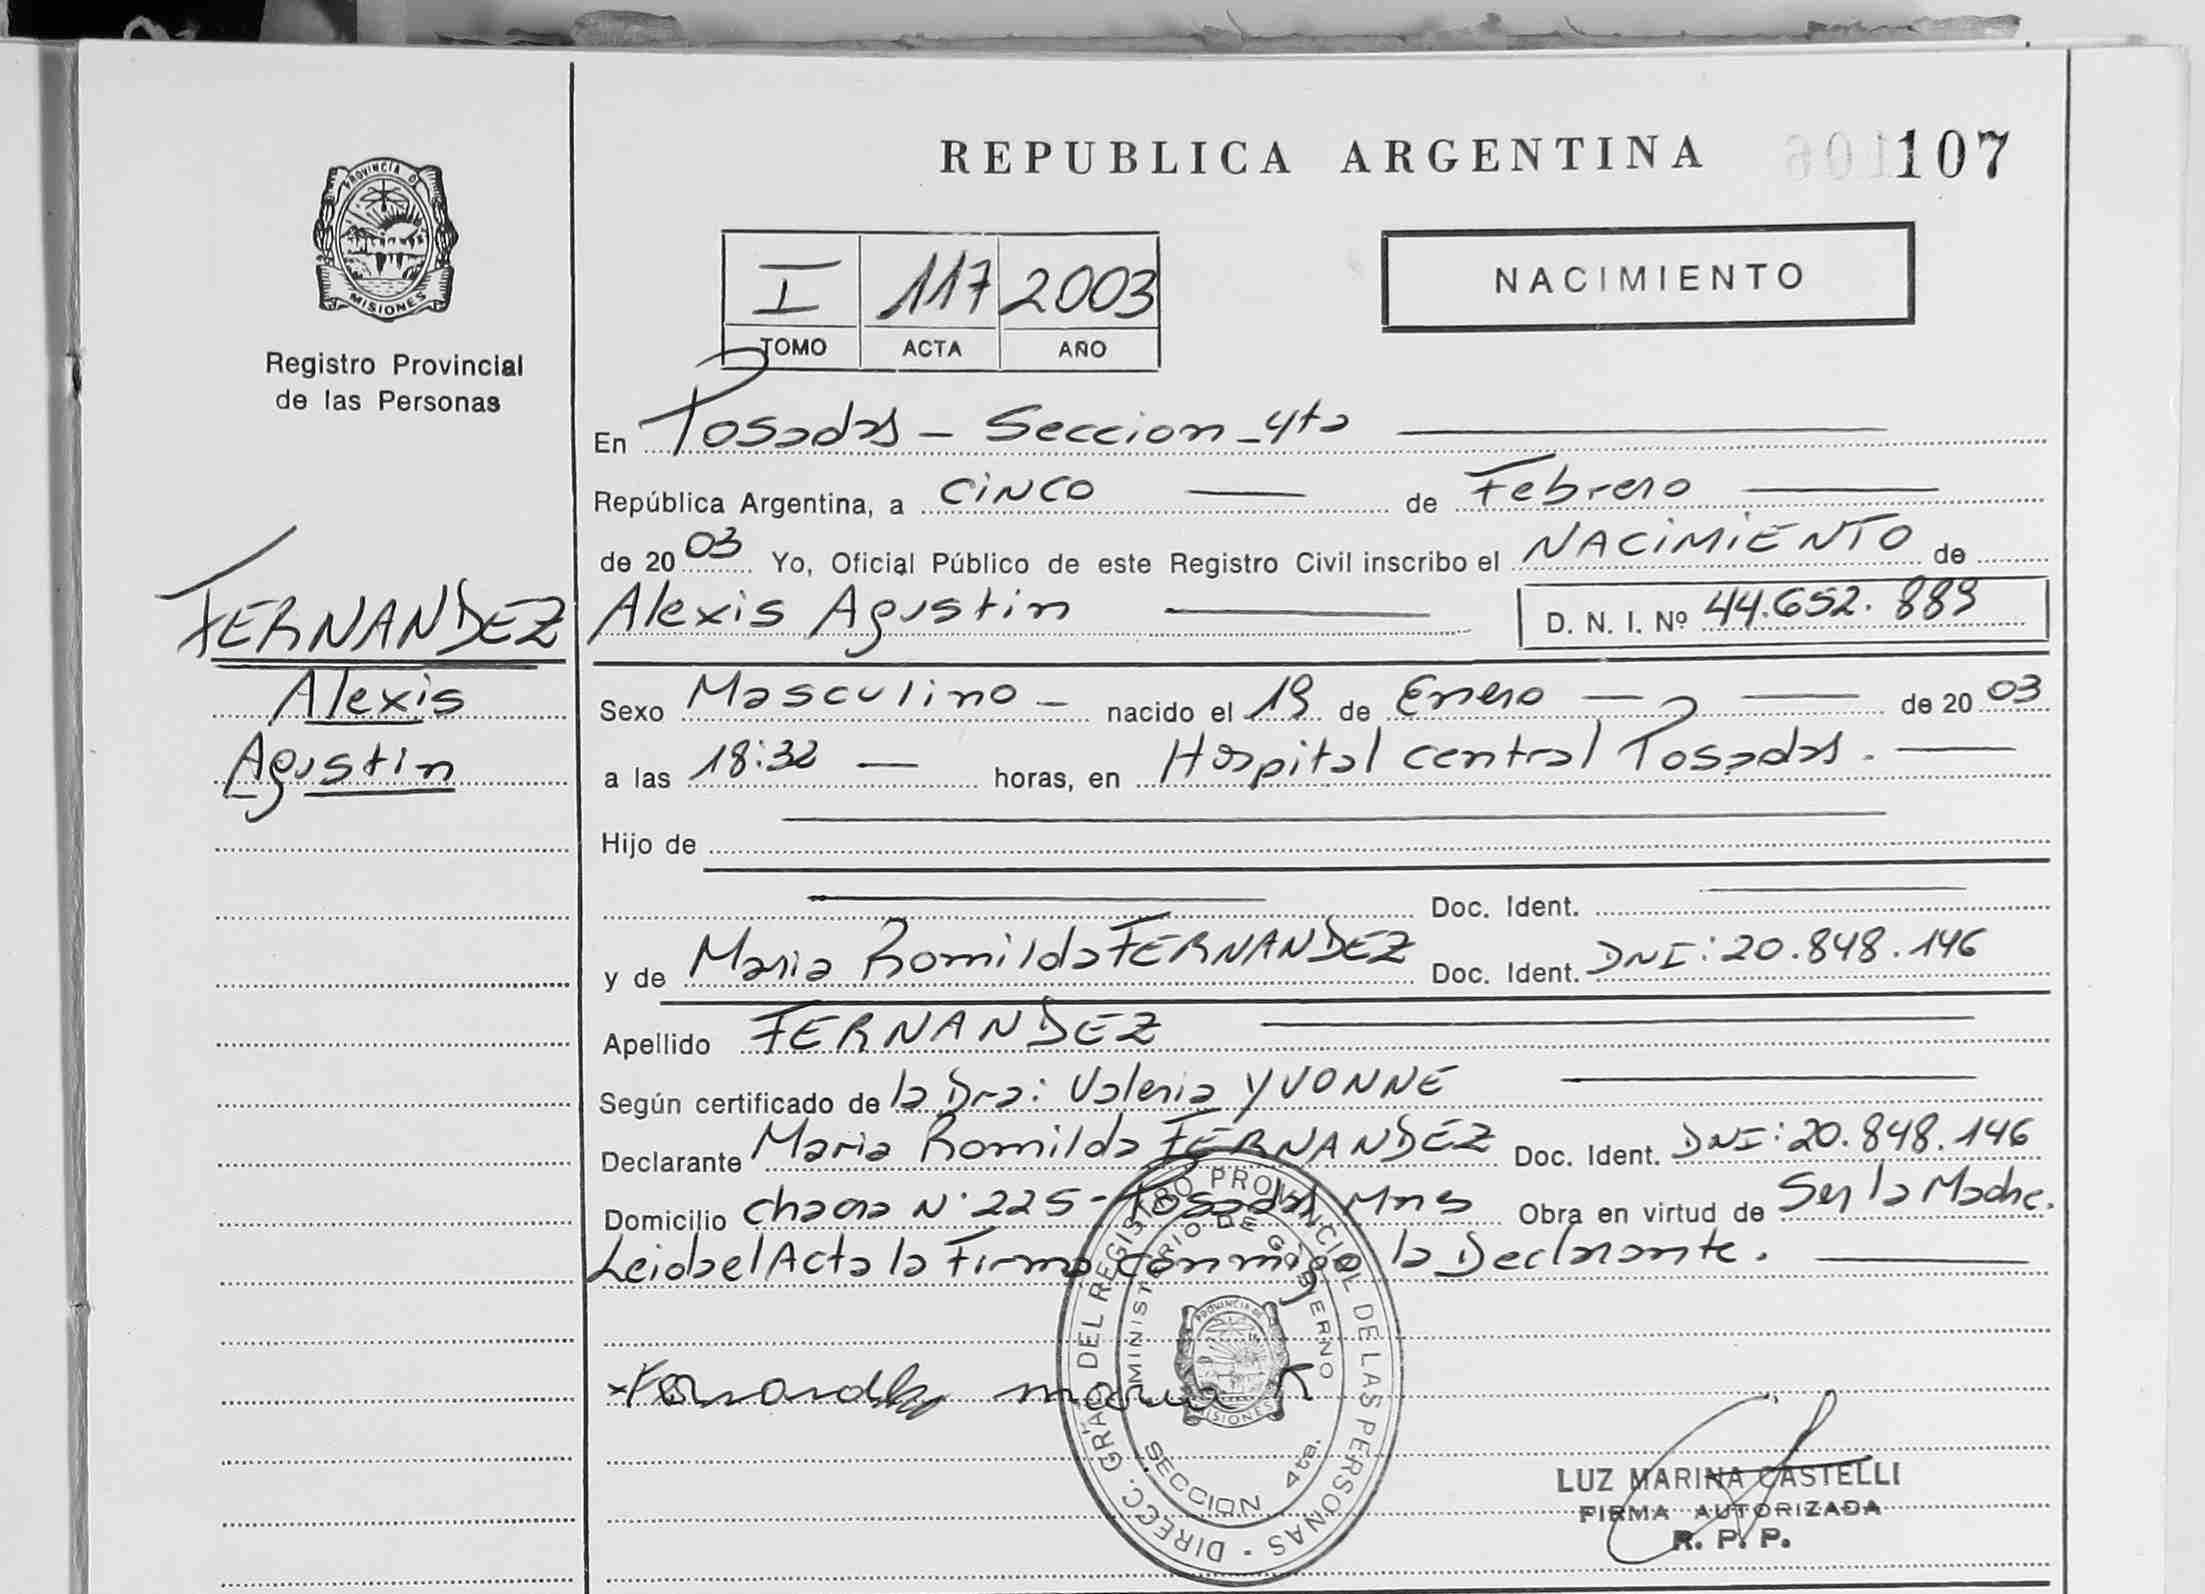 REPUBLICA ARGENTINA 107
PROVINCIA DE
MISIONES
Registro Provincial
de las Personas
I 117 2003
TOMO ACTA AÑO
NACIMIENTO
En Posadas - Seccion - 4ta
República Argentina, a Cinco de Febrero
de 20 03 Yo, Oficial Público de este Registro Civil inscribo el NACIMIENTO de
FERNANDEZ
Alexis
Agustin
Alexis Agustin D. N. I. Nº 44.652.889
Sexo Masculino - nacido el 19 de Enero de 20 03
a las 18:32 horas, en Hospital Central Posadas.
Hijo de
Doc. Ident.
y de Maria Romilda FERNANDEZ Doc. Ident. DNI: 20.848.146
Apellido FERNANDEZ
Según certificado de la Dra: Valeria YVONNE
Declarante Maria Romilda FERNANDEZ Doc. Ident. DNI: 20.848.146
Domicilio chacra N° 225 - Posadas Mns Obra en virtud de Ser la Madre.
Leida el Acta la Firma conmigo la Declarante.
Fernandez maria R
DIRECC. GRAL DEL REGISTRO PROVINCIAL DE LAS PERSONAS -
MINISTERIO DE GOBIERNO
PROVINCIA DE
MISIONES
SECCION 4ta.
LUZ MARINA CASTELLI
FIRMA AUTORIZADA
R. P. P.